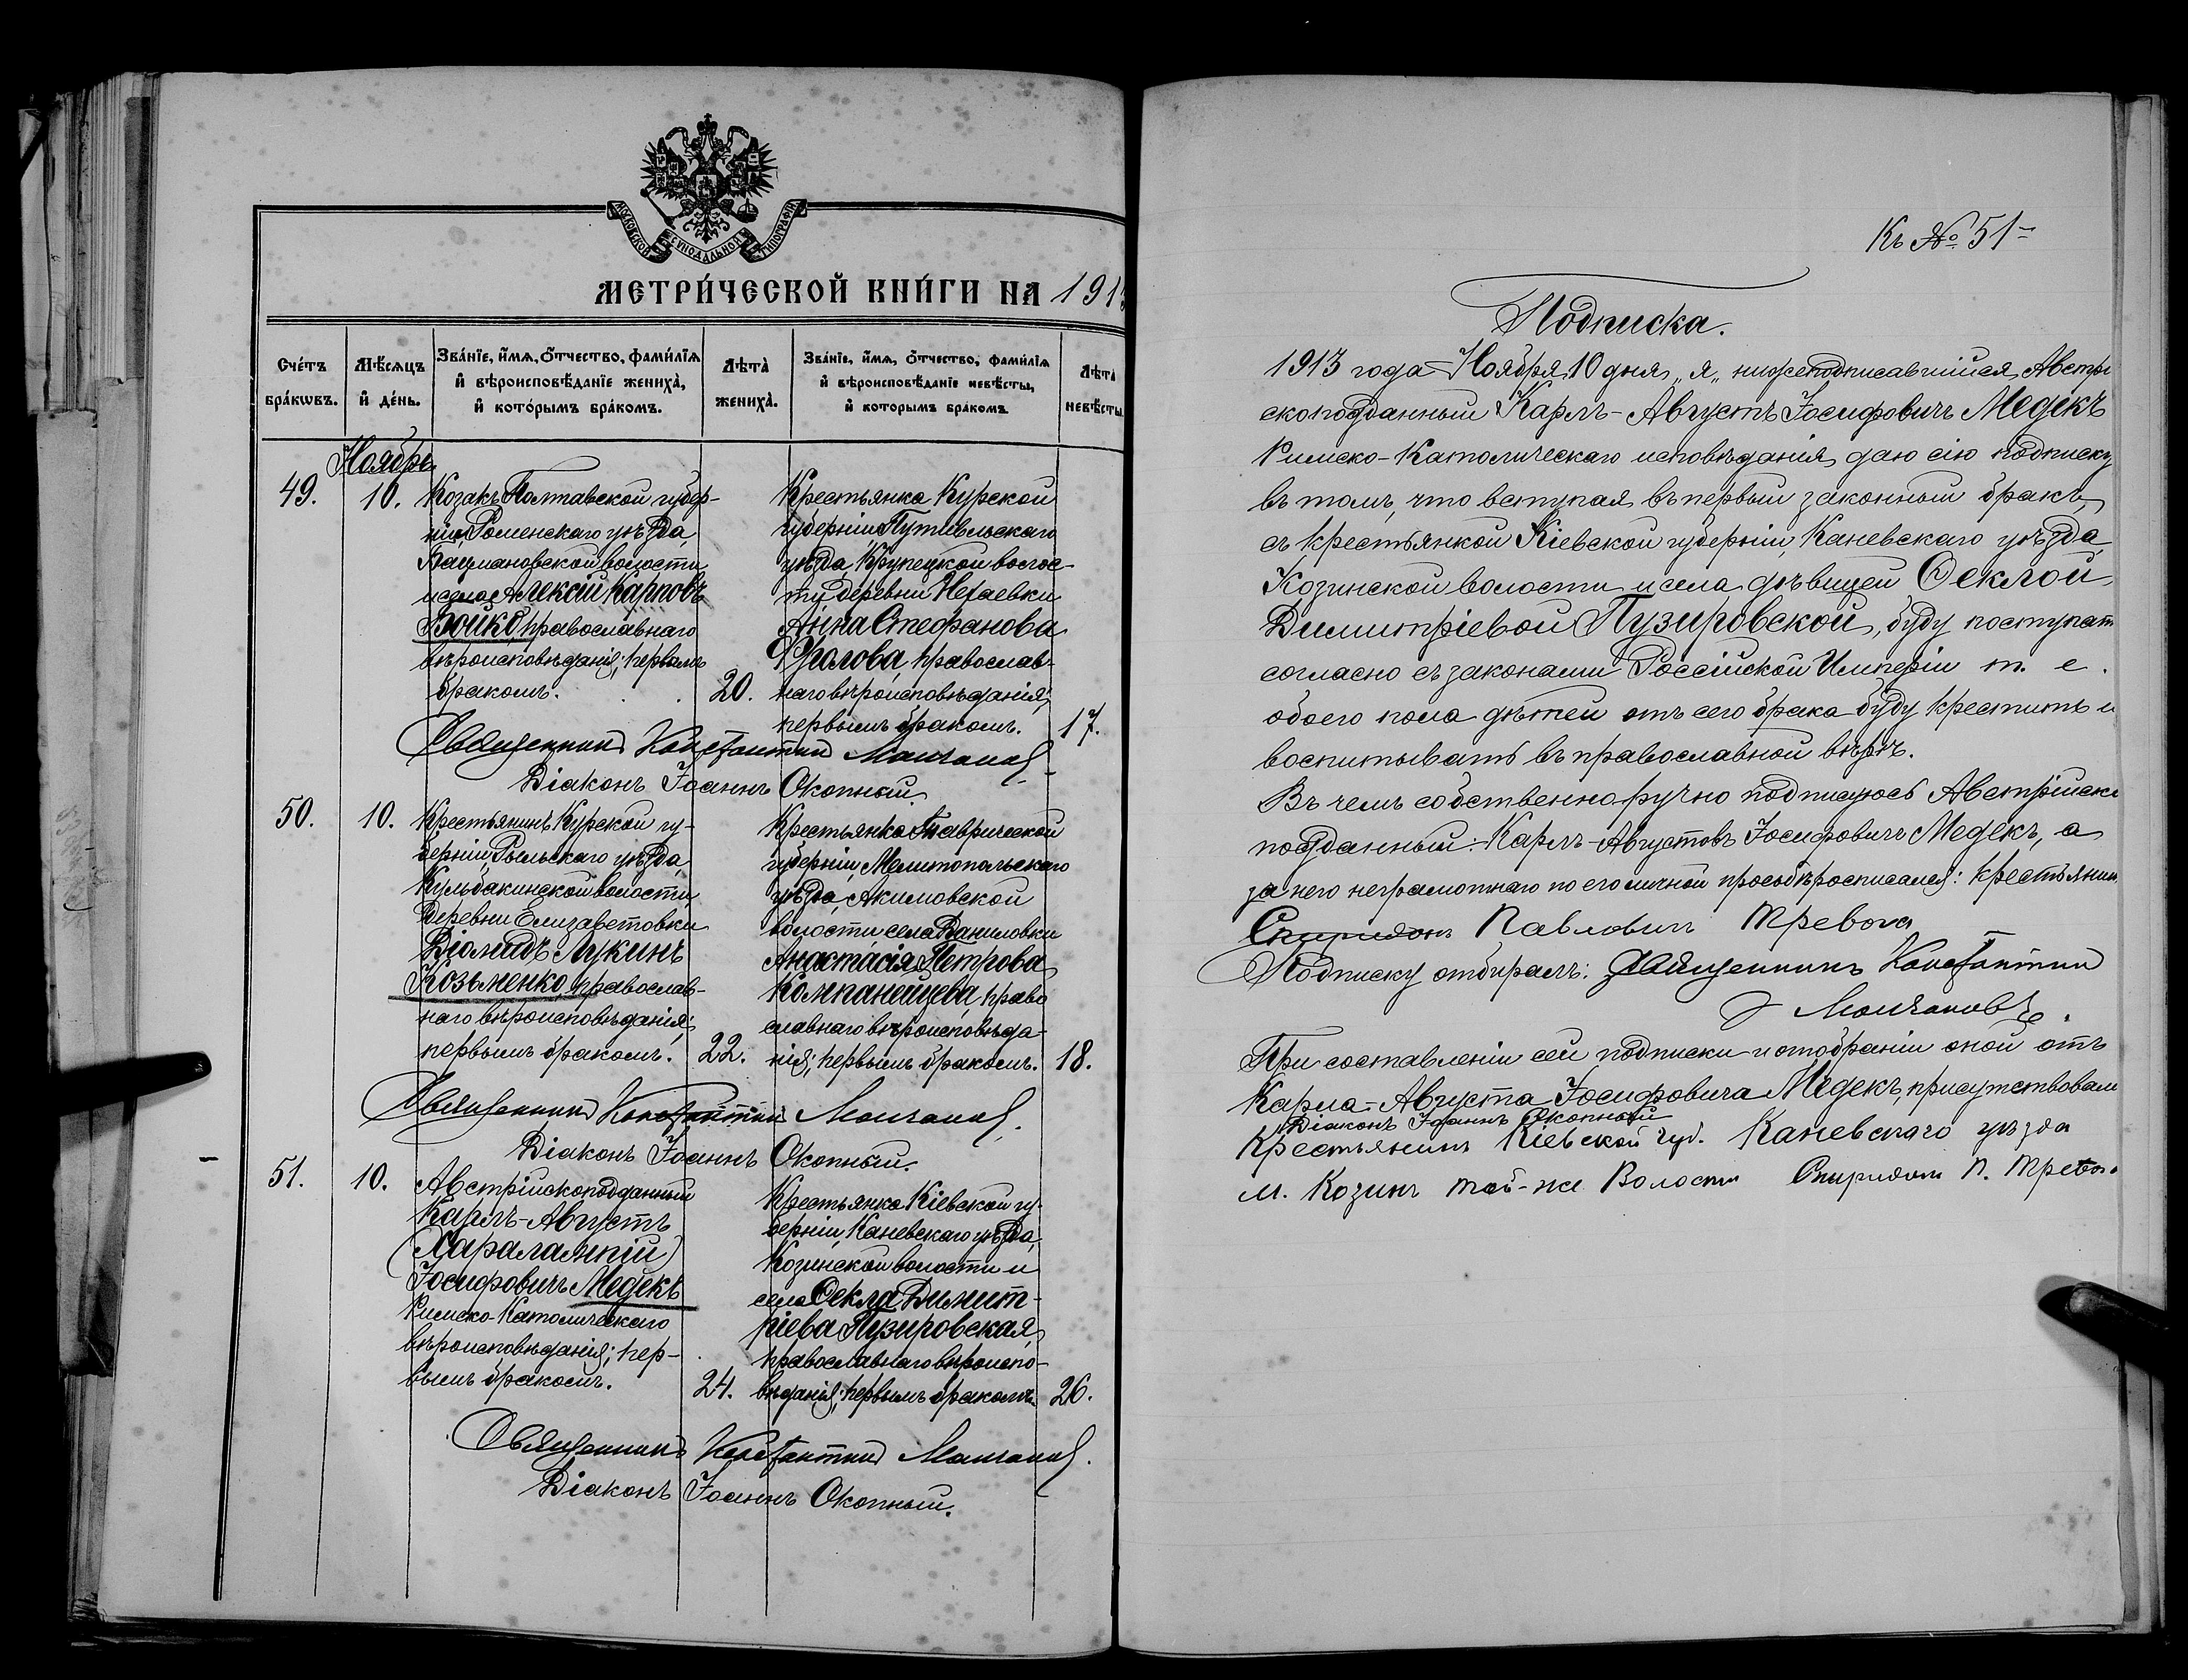 МОСКОВСКОЙ СѴНОДАЛЬНОЙ ТИПОГРАФІИ
МЕТРИ́ЧЕСКОЙ КНИ́ГИ НА 1913
Сче́тъ бра́кωвъ.
Мѣ́сяцъ и҆ де́нь.
Зва́нїе, и҆́мя, ѻ҆́тчество, фами́лїя и҆ вѣроисповѣ́данїе жениха̀, и҆ кото́рымъ бра́комъ.
Лѣта̀ жениха̀.
Зва́нїе, и҆́мя, ѻ҆́тчество, фами́лїя и҆ вѣроисповѣ́данїе невѣ́сты, и҆ которымъ бракомъ.
Лѣта̀ невѣ́сты.
Ноябрь
49.
10.
Козакъ Полтавской губер-
ніи, Роменскаго уѣзда
волости
и села Алексій Карповъ
Бойко, православнаго
вѣроисповѣданія; первымъ
бракомъ.
20.
Крестьянка Курской
губерніи, Путивльскаго
уѣзда, Крупецкой волос-
ти, деревни Нехаевки
Анна Стефанова
Фролова, православ-
наго вѣроисповѣданія;
первымъ бракомъ.
17.
Священникъ Константинъ Молчановъ
Діаконъ Іоаннъ Окопный.
50.
10.
Крестьянинъ Курской гу-
берніи, Рыльскаго уѣзда,
Кульбакинской волости
деревни Елизаветовки
Діомидъ Лукинъ
Козьменко, православ-
наго вѣроисповѣданія;
первымъ бракомъ.
22.
Крестьянка Таврической
губерніи, Мелитопольскаго
уѣзда, Акимовской
волости, села Даниловки
Анастасія Петрова
Компанейцева, право
славнаго вѣроисповѣда-
нія; первымъ бракомъ.
18.
Священникъ Константинъ Молчановъ.
Діаконъ Іоаннъ Окопный.
51.
10.
Австрійскоподданный
Карлъ-Августъ
(Харалампій)
Іосифовичъ Медекъ
Римско-Католическаго
вѣроисповѣданія; пер-
вымъ бракомъ.
24.
Крестьянка Кіевской гу-
берніи, Каневскаго уѣзда,
Козинской волости и
села Ѳекла Димит-
ріева Пузировская,
православнаго вѣроиспо-
вѣданія; первымъ бракомъ.
26.
Священникъ Константинъ Молчановъ.
Діаконъ Іоаннъ Окопный.
Къ № 51-
Подписка.
1913 года Ноября 10 дня „я„ нижеподписавшійся, Австрі
скоподданный Карлъ-Августъ Іосифовичъ Медекъ
Римско-Католическаго исповѣданія, даю сію подписку
въ томъ, что вступая въ первый законный бракъ,
съ крестьянкой Кіевской губерніи, Каневскаго уѣзда,
Козинской волости и села, дѣвицей Ѳеклой
Димитріевой Пузировской, буду поступат
согласно съ законами Россійской Имперіи т. е.
обоего пола дѣтей отъ сего брака буду крестить и
воспитывать въ православной вѣрѣ.
Въ чемъ собственноручно подписуюсь Австрійско
подданный: Карлъ-Августовъ Іосифовичъ Медекъ, а
за него неграмотнаго по его личной просьбѣ росписался: крестьянин
Спиридонъ Павловичъ Тревога
Подписку отбиралъ: Священникъ Константинъ
Молчановъ.
При составленіи сей подписки и отобраніи оной отъ
Карла-Августа Іосифовича Медекъ, присутствовали
Діаконъ Іоаннъ Окопный
Крестьянинъ Кіевской губ. Каневскаго уѣзда
м. Козинъ той-же Волости Спиридон П. Трево